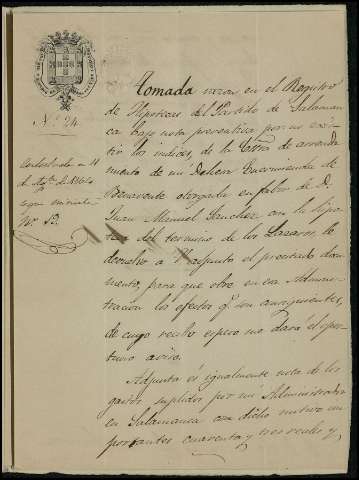 N.º 24.
Contestada en 11
de Agto. de 1864
según minuta
Nº. 13.
Tomada razon en el Registro
de Hipotecas del Partido de Salaman
ca bajo nota preventiva por no exis
tir los indices, de la Escra de arrenda
miento de una Dehesa Encomienda de
Benavente otorgada en fabor de D.
Juan Manuel Sanchez con la hipo
teca del termino de los Lazaros, le
devuelvo a V. adjunto el precitado docu
mento, para que obre en esa Adminis
tracion los efectos qe. son consiguientes,
de cuyo recibo espero me dará el opor
tuno aviso.
Adjunta és igualmente nota de los
gastos suplidos por mi Administrador
en Salamanca con dicho motivo im
portantes cuarenta y tres reales y